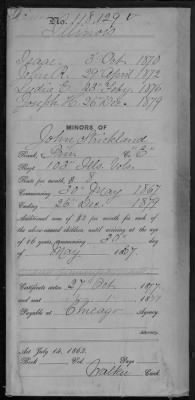 No. 118,129
Illinois
Isaac 5 Oct. 1870
29 April 1872
Lydia E. 23 Feby 1876
Joseph H. 26 Dec. 1879
MINORS OF
John Strickland
Rank, Priv Co. "E"
Regt 103d Ills. Vols.
Rate per month, $ 8
Commencing 30" May 1867
Ending 26" Dec. 1879
Additional sum of $2 per month for each of
the above-named children until arriving at the age
of 16 years, commencing 30th day
of May 1867.
Certificate dated 27 Oct 1877
and sent
Payable at Chicago Agency.
Attorney.
Act July 14, 1862.
Book Vol. Page
Walker Clerk